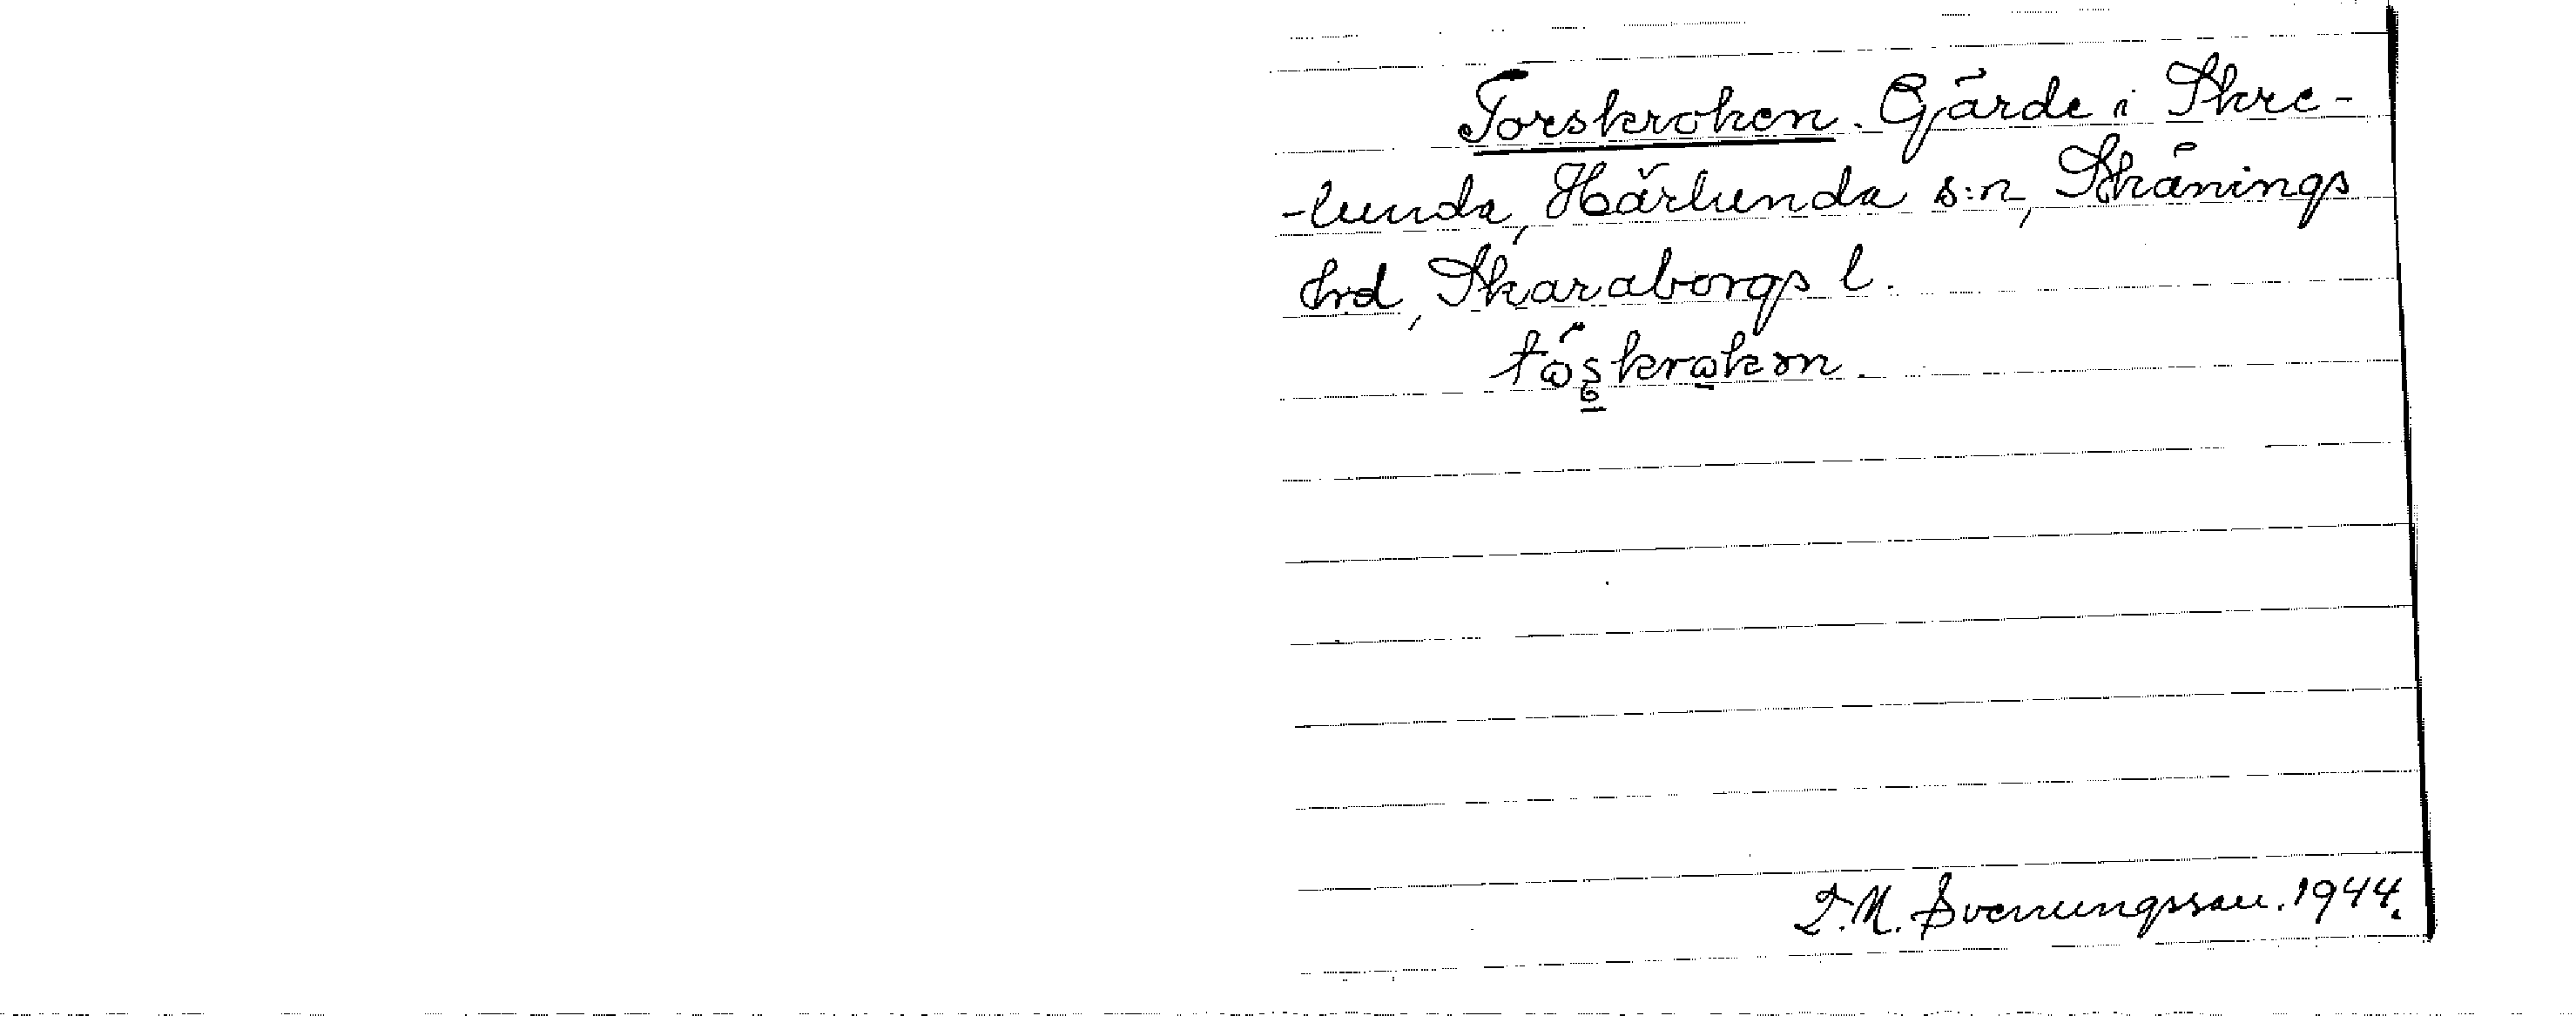 Torskroken. Gärde i Skre-
-lunda, Härlunda s:n, Skånings
hrd, Skaraborgs l.
Svenungsson. 1944.